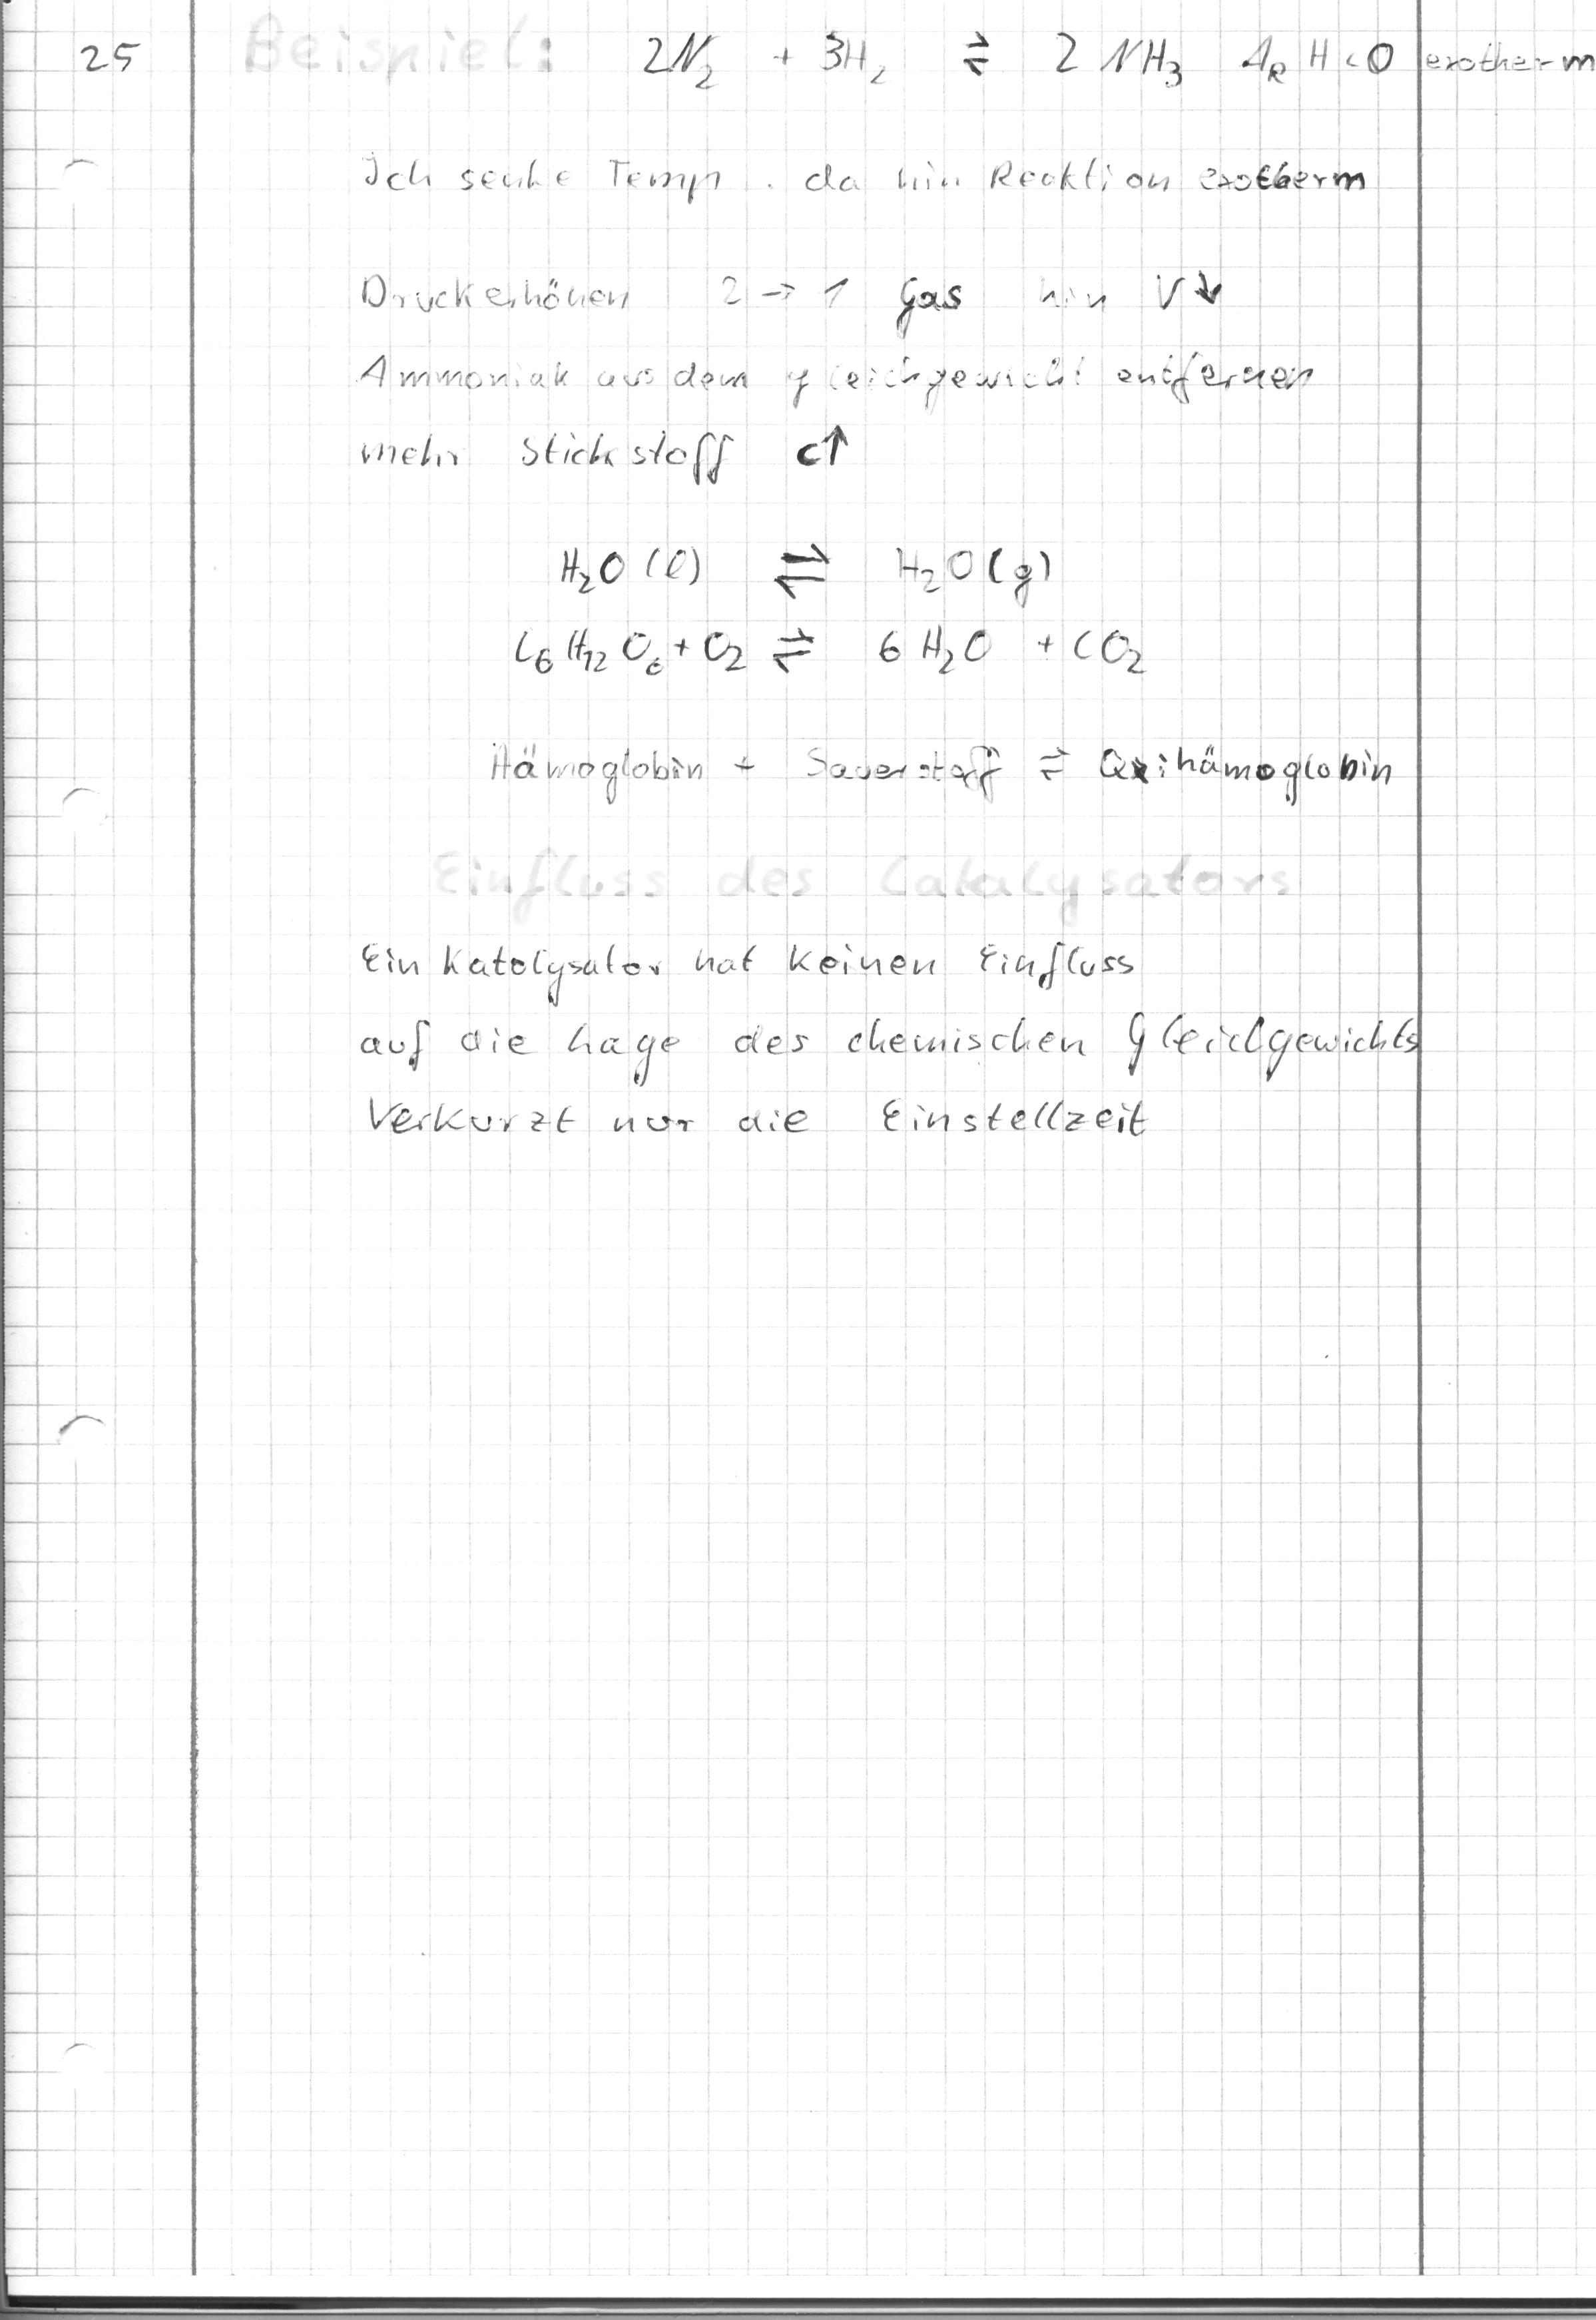 25 Beispiel: 2N₂ + 3H₂ ⇌ 2 NH₃ ΔR H < 0 exotherm
Ich senke Temp. da hin Reaktion exotherm
Druck erhöhen 2 → 1 Gas hin V↓
Ammoniak aus dem gleichgewicht entfernen
mehr Stickstoff c↑
H₂O (l) ⇌ H₂O (g)
C₆H₁₂O₆ + O₂ ⇌ 6 H₂O + CO₂
Hämoglobin + Sauerstoff ⇌ Oxihämoglobin
Einfluss des Catalysators
Ein Katalysator hat keinen Einfluss
auf die Lage des chemischen Gleichgewichts
Verkurzt nur die Einstellzeit